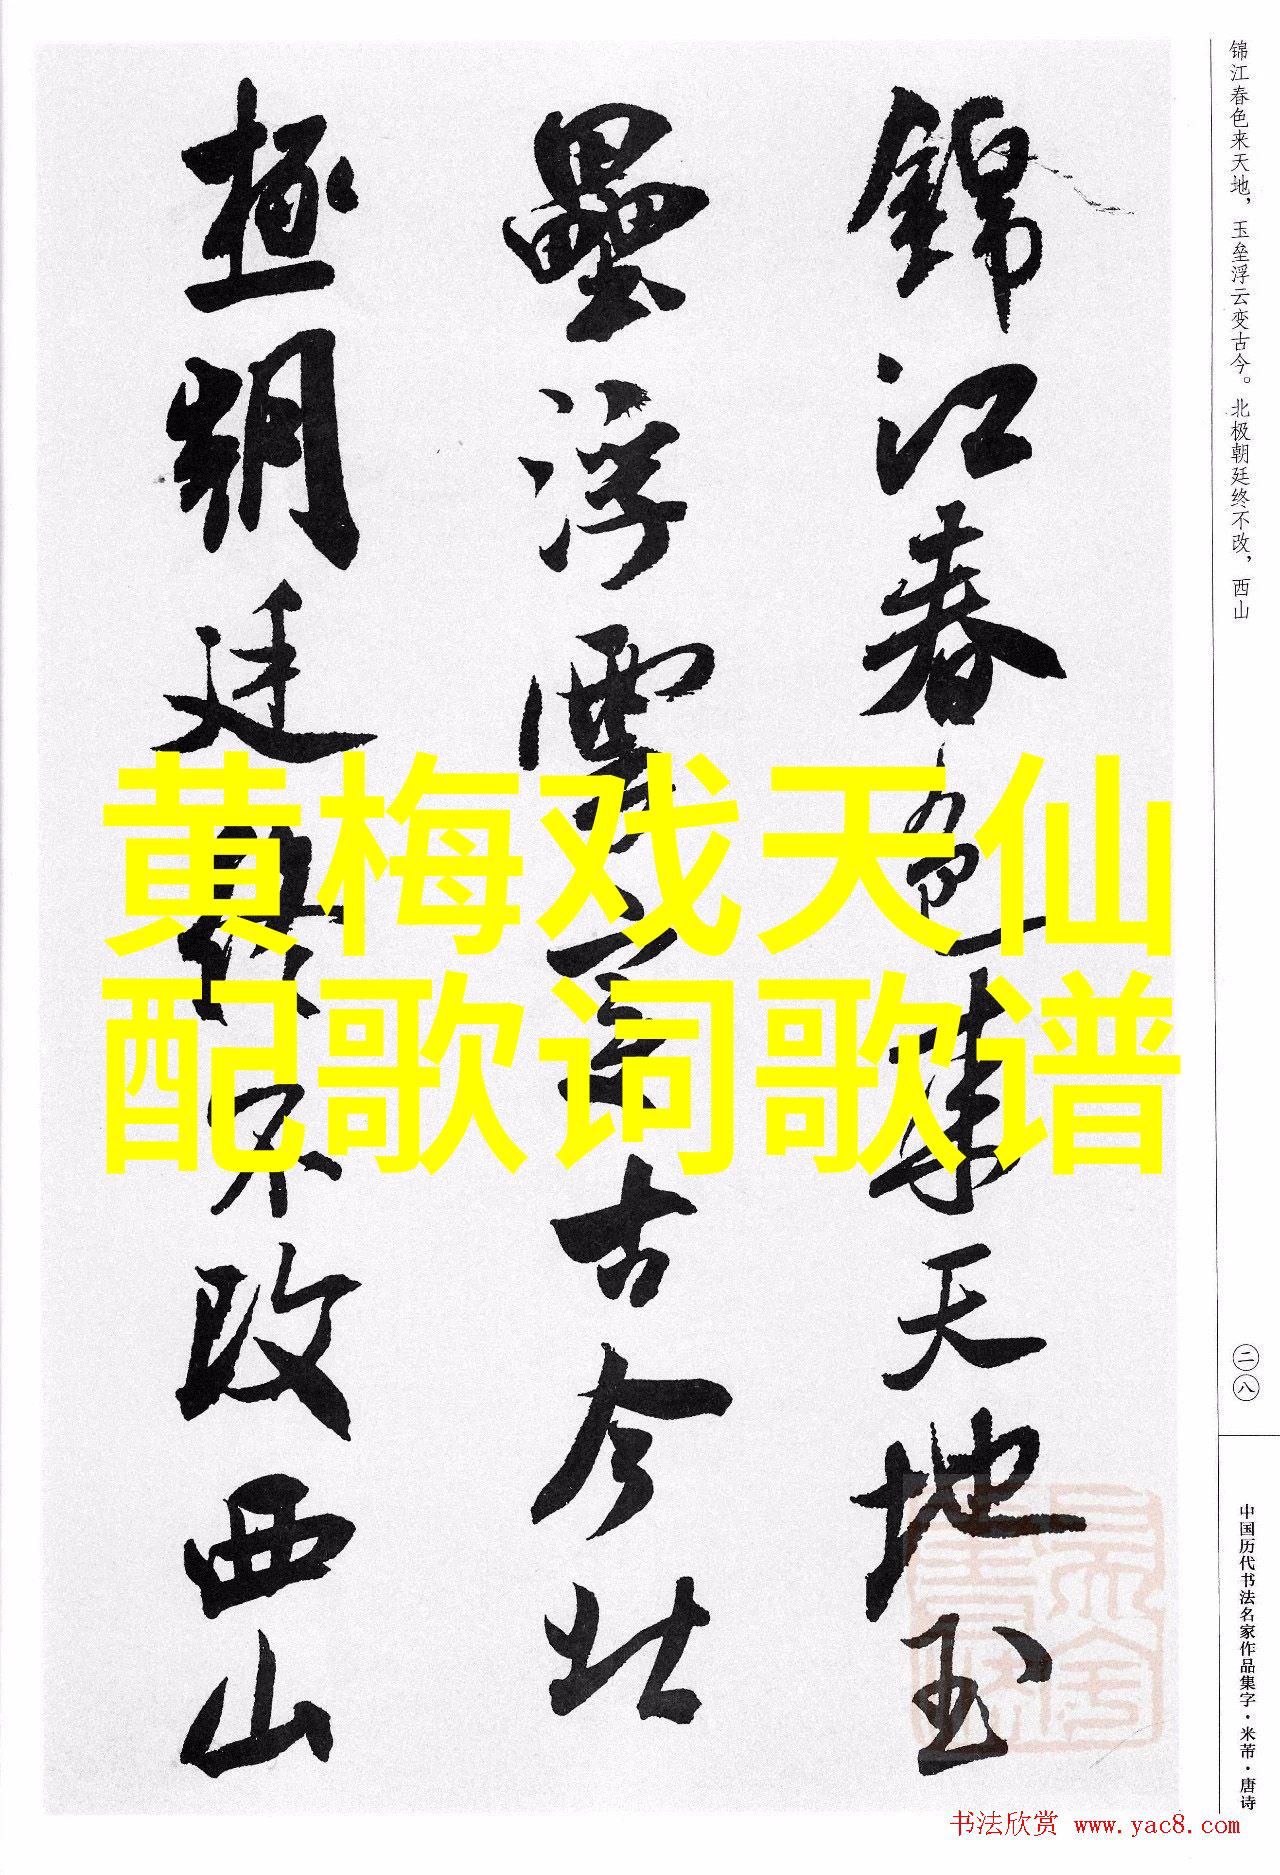 錦江春色来天地玉
壘浮雲变古今北
極朝廷終不改西山
锦江春色来天地，玉垒浮云变古今。北极朝廷终不改，西山
二八
中国历代书法名家作品集字·米芾·唐诗
黄梅戏天仙
配歌词歌谱
书法欣赏 www.yac8.com